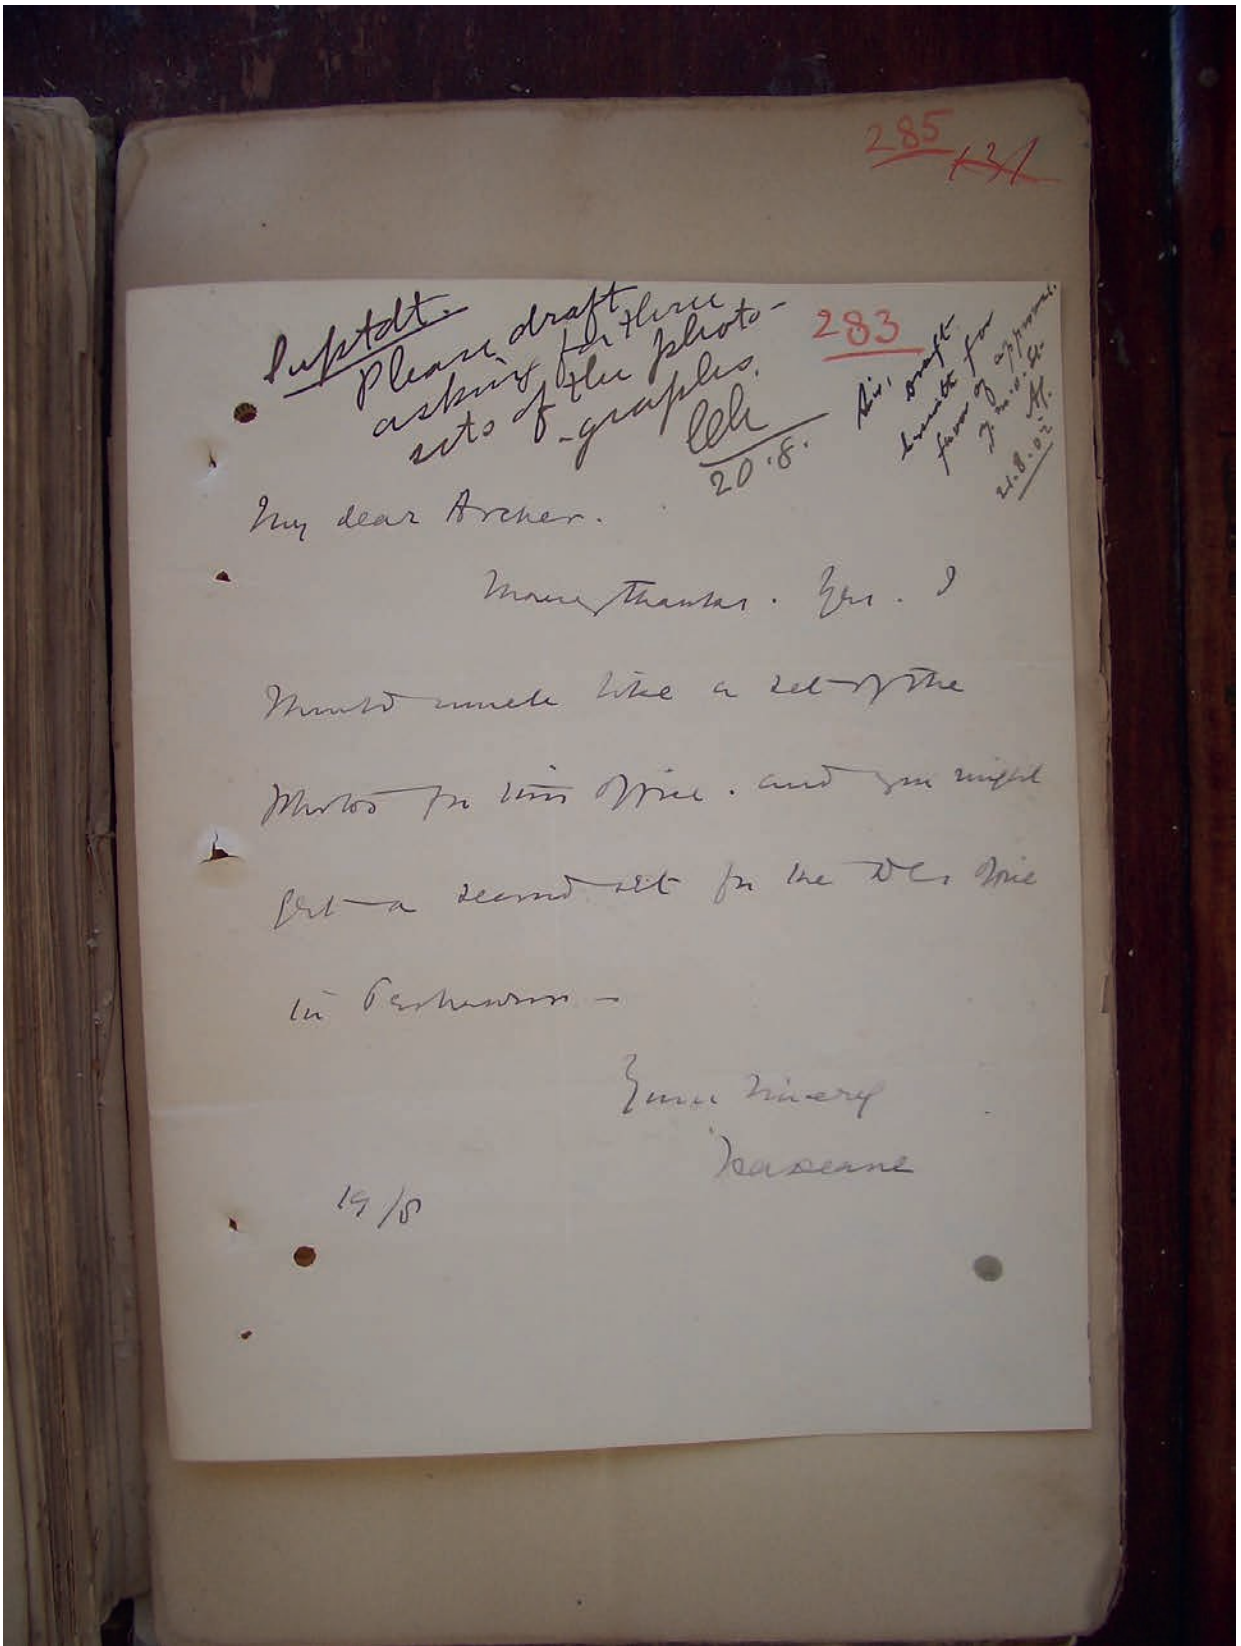 285
283
Suptdt.
Please draft
asking for three
sets of the photo-
-graphs.
20.8.
Sir,
draft
submitted for
favor of approval.
21.8.02
My dear Archer.
Many thanks. Yes. I
should much like a set of the
photos for this office. and you might
get a second set for the DCs office
in Peshawar –
Yours sincerely
19/8